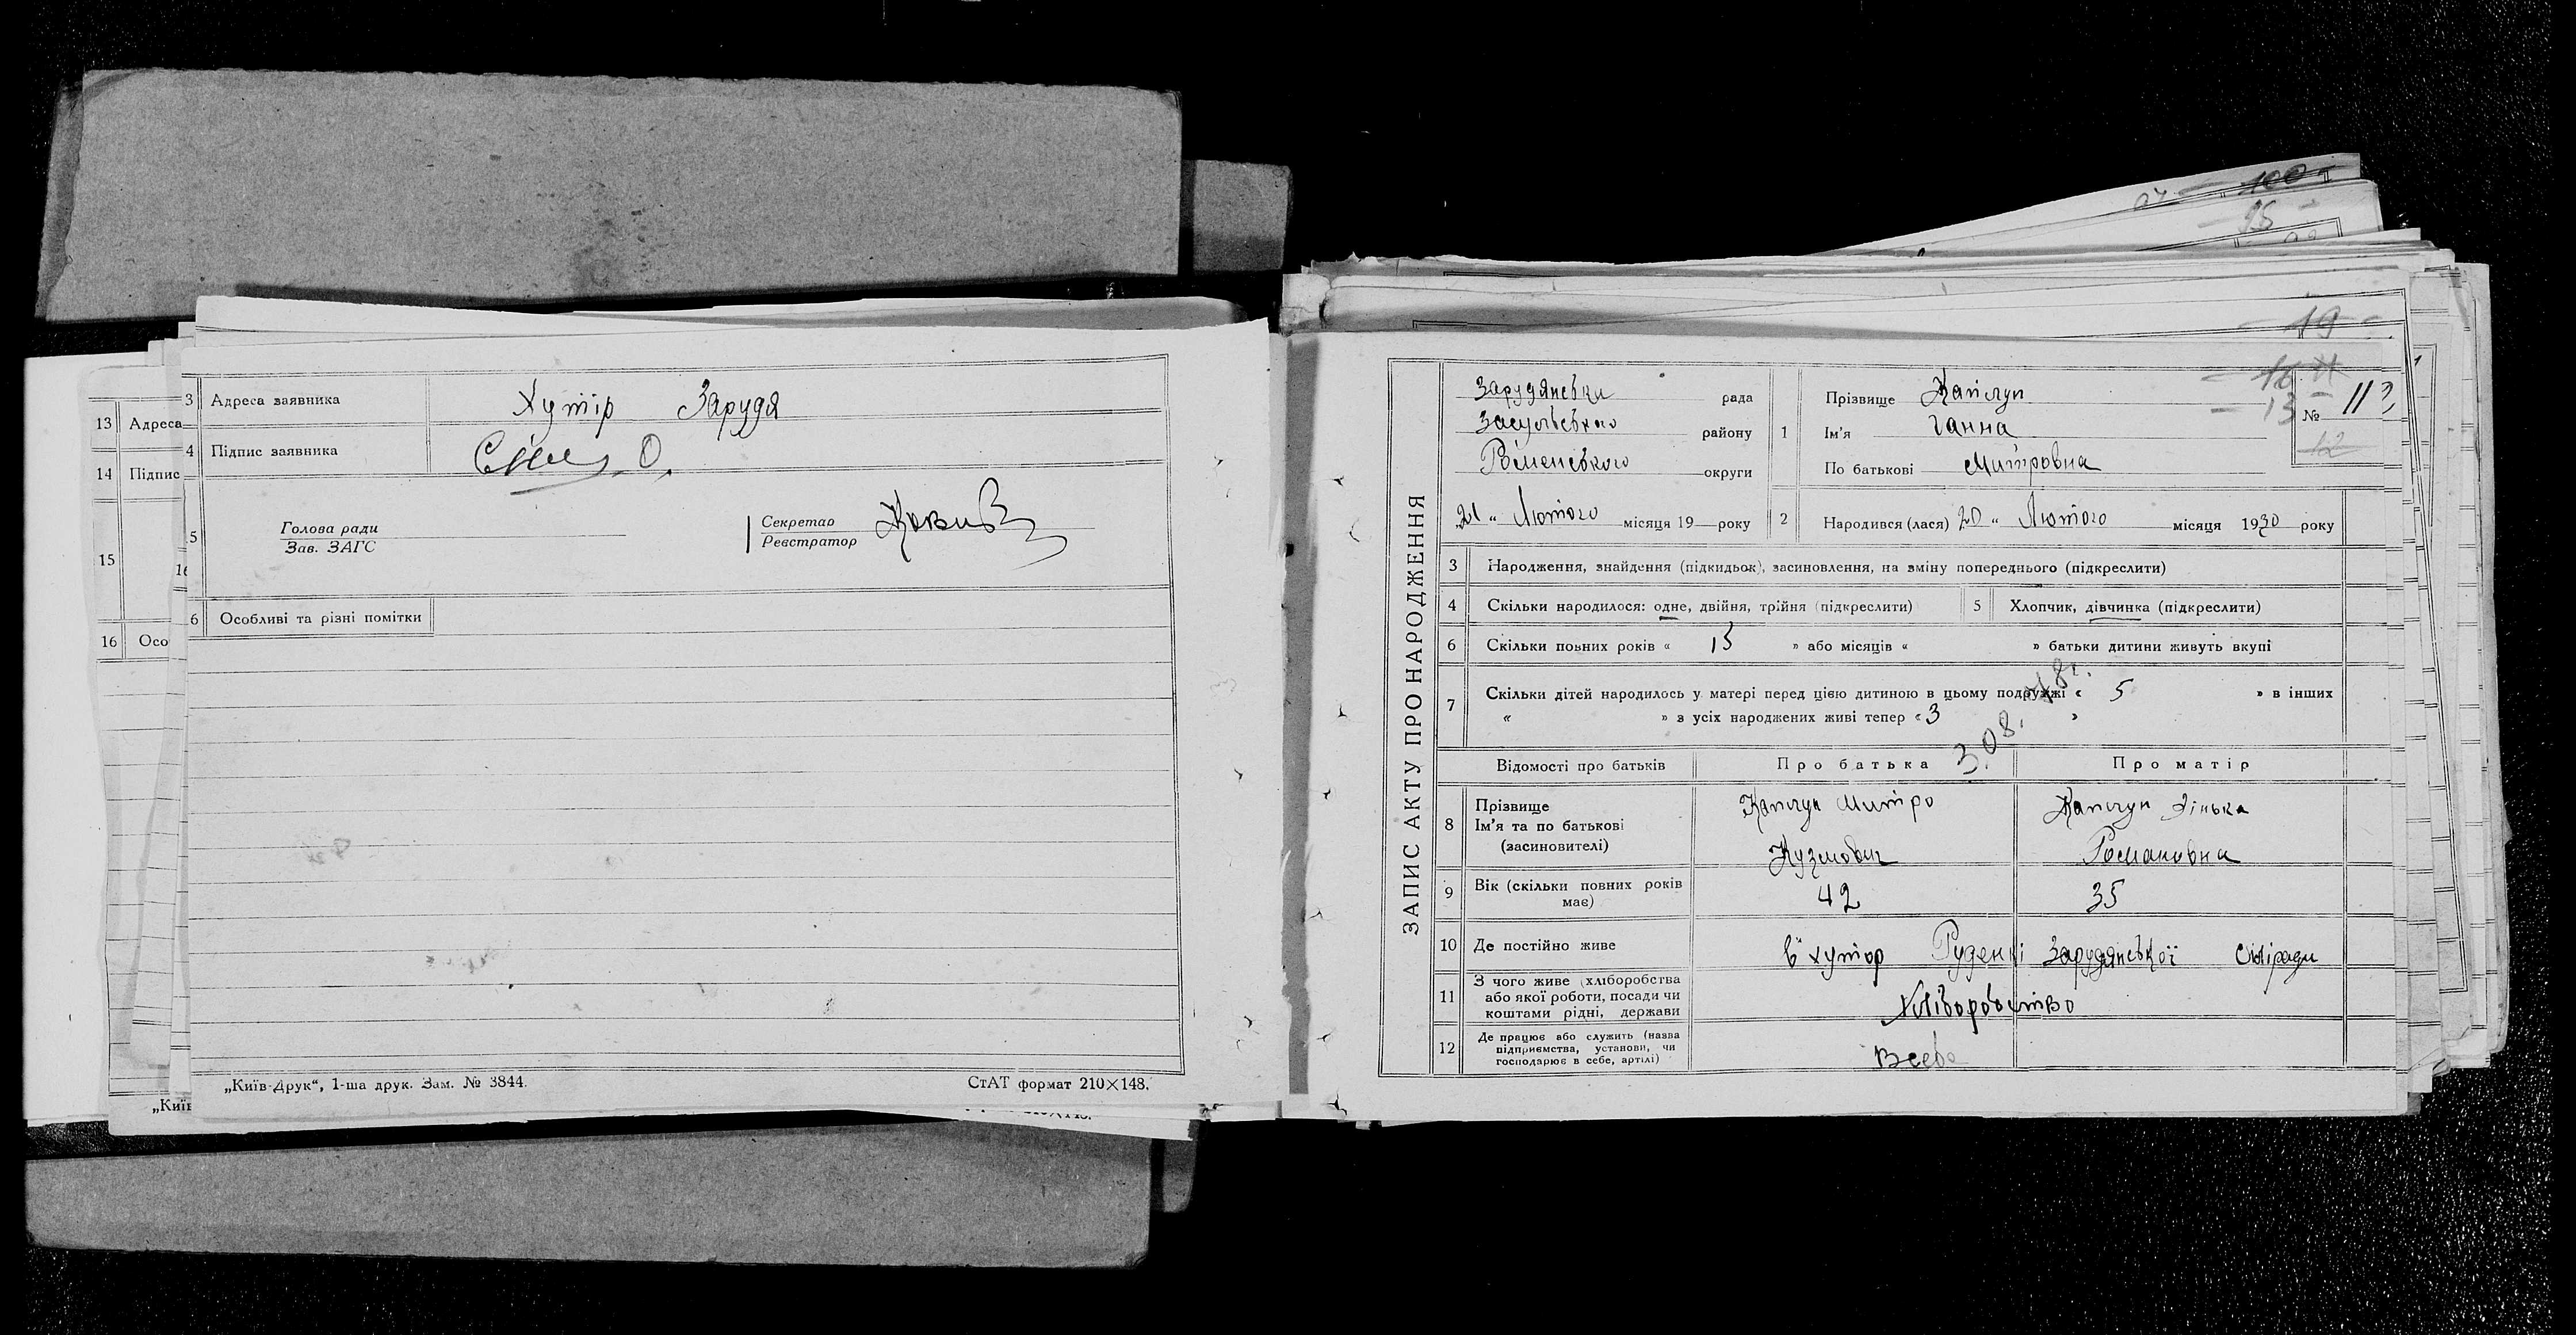 13 Адреса
14 Підпис
15
16 Осо
„Київ
3 Адреса заявника Хутір Зарудя
4 Підпис заявника
5 Голова ради
Зав. ЗАГС
Секретар
Реєстратор
6 Особливі та різні помітки
„Київ-Друк“, 1-ша друк. Зам. № 3844.
СтАТ формат 210×148.
100
95
19
16
13
№ 113
12
ЗАПИС АКТУ ПРО НАРОДЖЕННЯ
Зарудянська рада
Засульського району
Роменського округи
„21 “ Лютого місяця 19 року
1 Прізвище Каплун
Ім'я Ганна
По батькові Митровна
2 Народився (лася) 20 “ Лютого місяця 1930 року
3 Народження, знайдення (підкидьок), засиновлення, на зміну попереднього (підкреслити)
4 Скільки народилося: одне, двійня, трійня (підкреслити)
5 Хлопчик, дівчинка (підкреслити)
6 Скільки повних років « 15 » або місяців « » батьки дитини живуть вкупі
7 Скільки дітей народилось у матері перед цією дитиною в цьому подружжі « 5 » в інших
« » з усіх народжених живі тепер « 3 »
Відомості про батьків Про батька Про матір
8 Прізвище
Ім'я та по батькові
(засиновителі)
Каплун Митро
Кузмович
Каплун Зінька
Романовна
9 Вік (скільки повних років
має)
42 35
10 Де постійно живе в хутор Руденкі Зарудянської сільради
11 З чого живе (хліборобства
або якої роботи, посади чи
коштами рідні, держави
Хліборобство
12 Де працює або служить (назва
підприємства, установи, чи
господарює в себе, артілі)
В себе